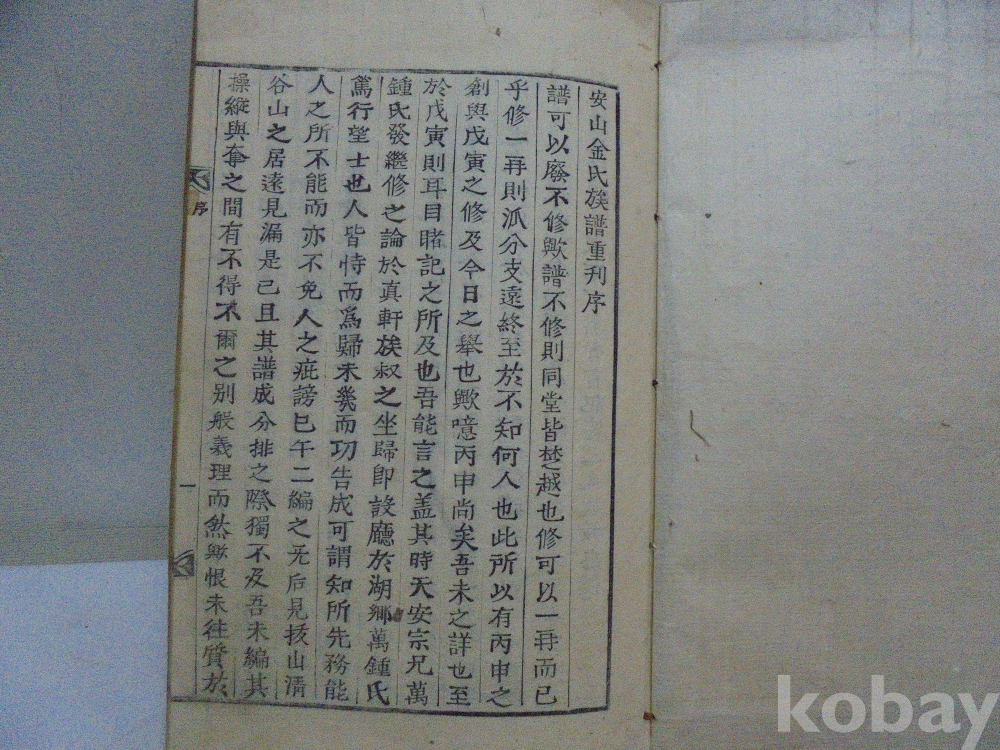 安山金氏族譜重刋序
譜可以廢不修歟譜不修則同堂皆楚越也修可以一再而已
乎修一再則派分支遠終至於不知何人也此所以有丙申之
創與戊寅之修及今日之舉也歟噫丙申尚矣吾未之詳也至
於戊寅則耳目睹記之所及也吾能言之盖其時天安宗兄萬
鍾氏發繼修之論於真軒族叔之坐歸即設廳於湖鄉萬鍾氏
篤行望士也人皆恃而爲歸未幾而功告成可謂知所先務能
人之所不能而亦不免人之疵謗巳午二編之旡后見拔山清
谷山之居遠見漏是已且其譜成分排之際獨不及吾未編其
操縱與奪之間有不得不爾之别般義理而然歟恨未往質於
序
一
kobay